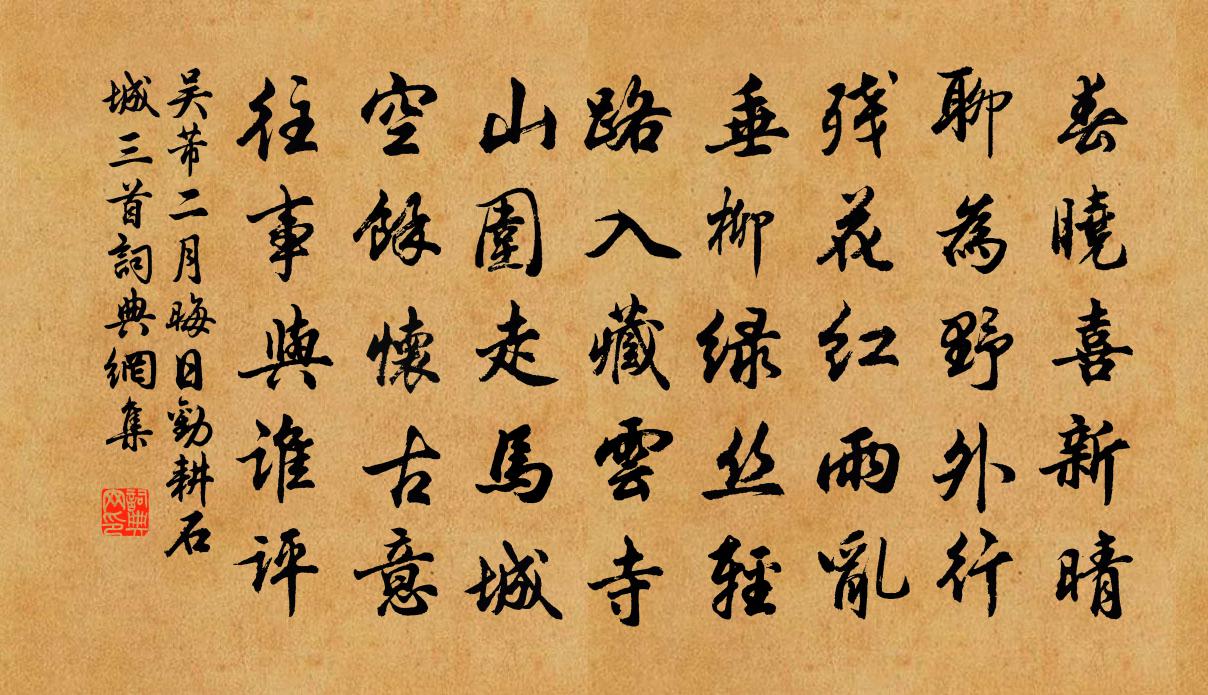 春曉喜新晴
聊為野外行
残花紅雨亂
垂柳緑丝輕
路入藏雲寺
山圍走馬城
空餘懷古意
往事與誰評
吴芾二月晦日勸耕石
城三首詞典網集
詞典网印